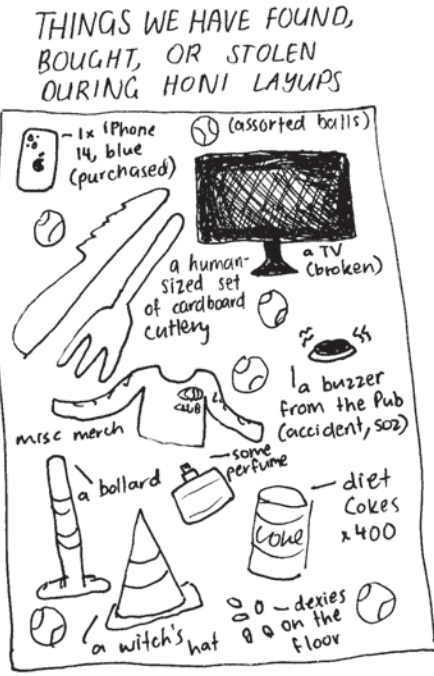 THINGS WE HAVE FOUND,
BOUGHT, OR STOLEN
DURING HONI LAYUPS
1x iPhone
14, blue
(purchased)
(assorted balls)
a human-
sized set
of cardboard
cutlery
a TV
(broken)
a buzzer
from the Pub
(accident, soz)
CLUB
misc merch
some
perfume
a bollard
diet
Cokes
x400
Coke
a witch's hat
dexies
on the
floor